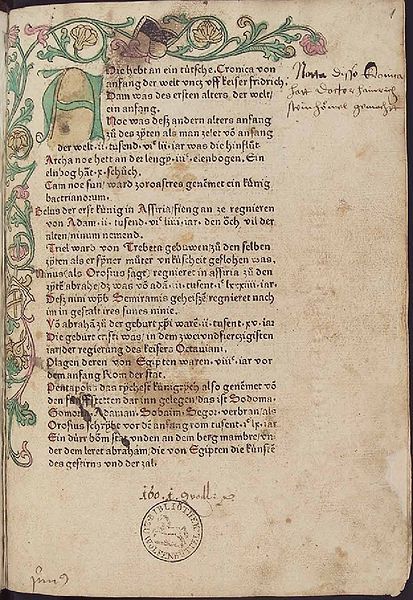 Hie hebt an ein tütsche Cronica von
anfang der welt vncz vff keiser fridrich.
Adam was des ersten alters der welt/
ein anfang.
Noe was desz andern alters anfang
der welt .ii. tusend. vi^c lii. iar was die sinflůt
Archa noe hett an der lenge iii^c elenbogen. Ein
elnbog hat .x. schůch.
Cam noe sun/ ward zoroastres genemet ein künig
bactrianorum.
Belus der erst künig in Assiria/ fieng an ze regnieren
von Adam .ii. tusend. iar. den och vil der
alten/ ninum nemend.
Triel ward von Trebeta gebuwen/ zů den selben
zyten als er syner můter vnküscheit geflohen was.
Ninus (als Orosius sagt) regnieret in assiria zů den
zyten abrahe
Desz nini wyb Semiramis geheisze regnieret nach
im in gestalt ires sunes ninie.
Vō abrahā zů der geburt xp̄i warē .ii. tusent .xv. iar
Die geburt cristi was/ in dem zweiundfierczigisten
iar der regierung des keisers Octauiani.
Plagen deren von Egipten waren. viii^c iar vor
dem anfang Rom der stat.
Pentapolis das rychest künigrych also genemet vō
den fünff stetten dar inn gelegen/ das ist Sodoma.
Gomorra. Adaman. Soboim. Segor. verbran/ als
Orosius schrybt vor dē anfang rom tusent. i^c lx iar
Ein dürr bōm stat vnden an dem berg mambre/ vn̄
der dem leret abraham/ die von Egipten die künste
des gestirns vnd der zal.
Nota disse Cronica
hatt Doctor heinrich
steinhöwel gemacht
BIBLIOTHEK
WOLFENBÜTTEL